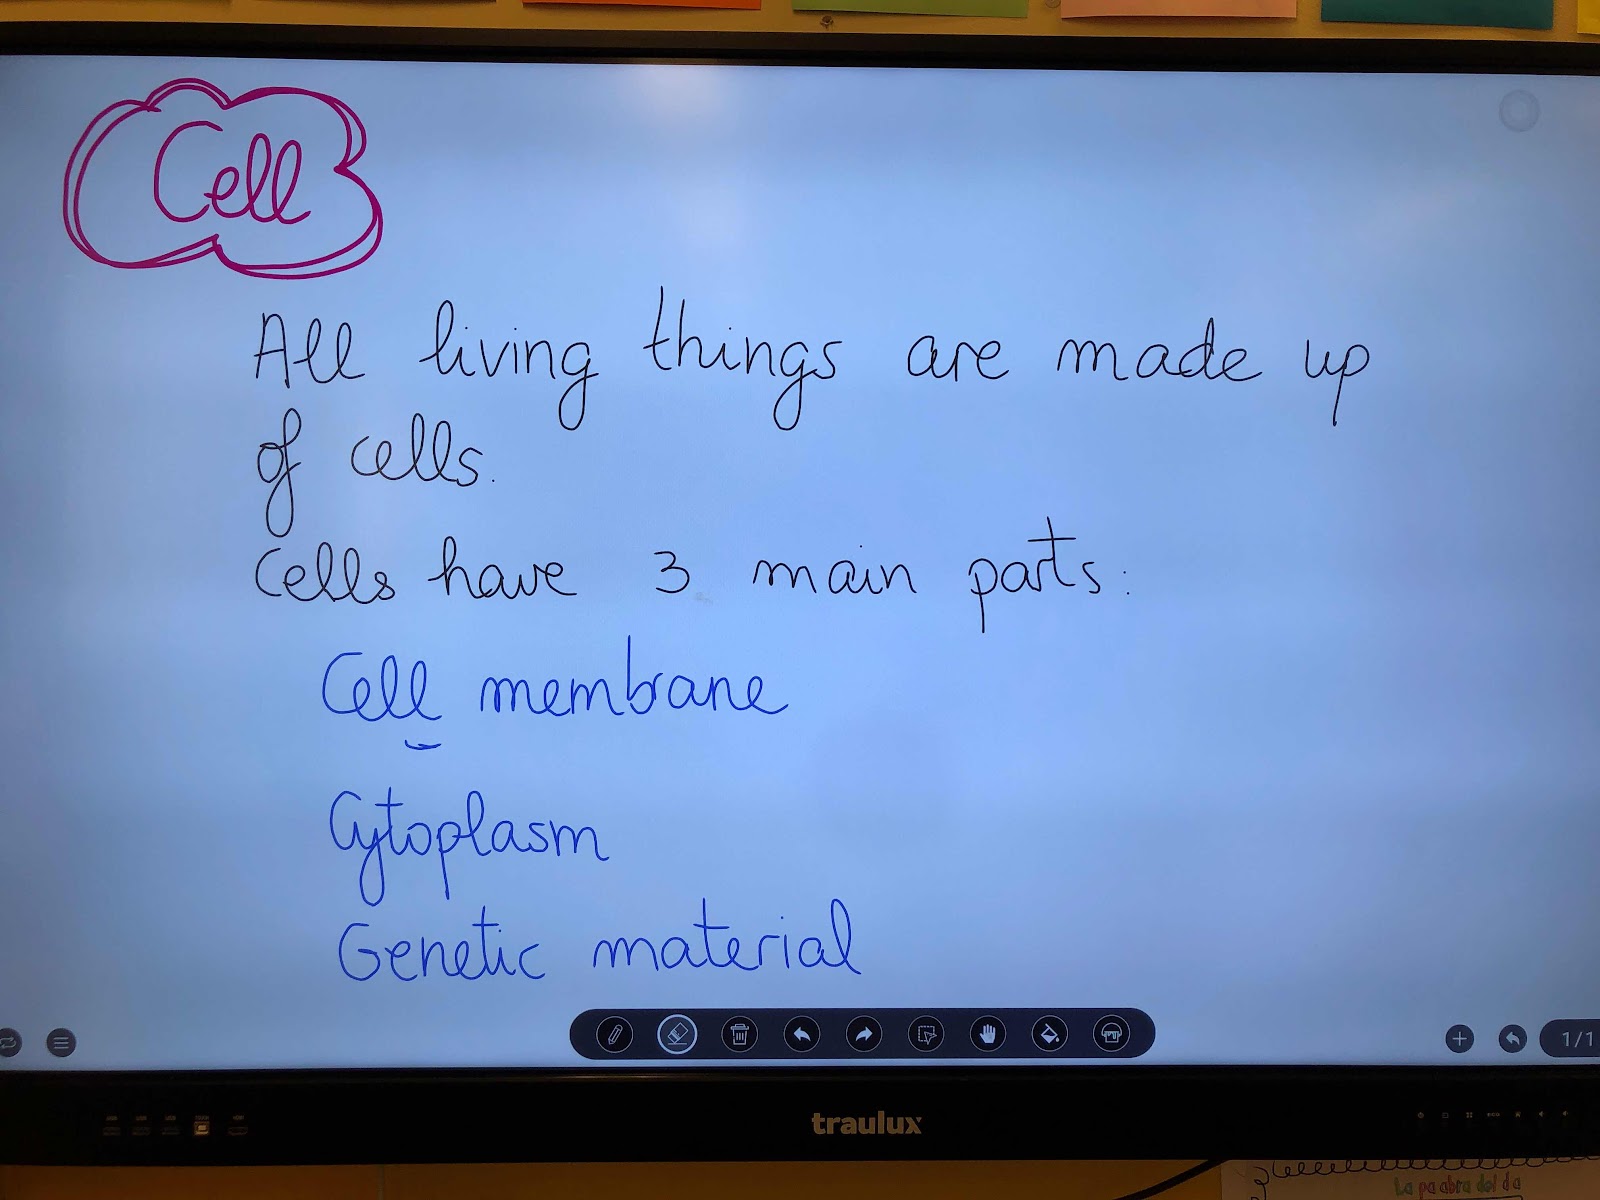 Cell
All living things are made up
of cells.
Cells have 3 main parts:
Cell membrane
Cytoplasm
Genetic material
1/1
traulux
La palabra del da